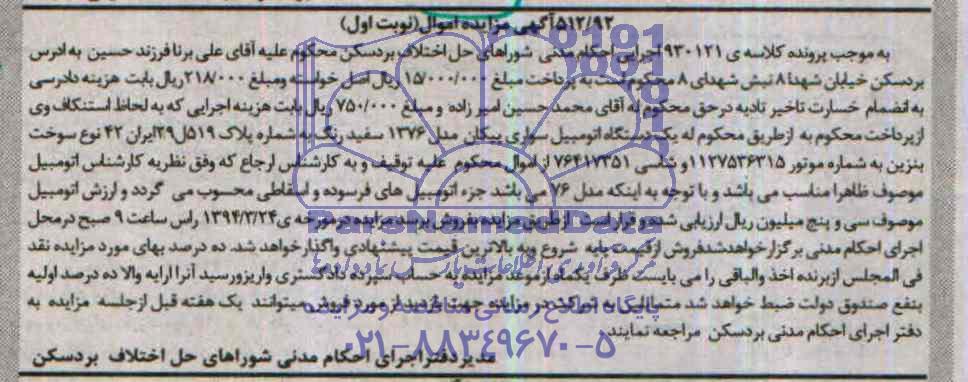 ۵۱۲/۹۲ آگهی مزایده اموال (نوبت اول)
به موجب پرونده کلاسه ی ۹۳۰۱۲۱ اجرایی احکام مدنی شوراهای حل اختلاف بردسکن محکوم علیه آقای علی برنا فرزند حسین به ادرس
بردسکن خیابان شهدا ۸ نبش شهدای ۸ محکوم است به پرداخت مبلغ ۱۵/۰۰۰/۰۰۰ ریال اصل خواسته و مبلغ ۲۱۸/۰۰۰ ریال بابت هزینه دادرسی
به انضمام خسارت تاخیر تادیه در حق محکوم له آقای محمد حسین امیر زاده و مبلغ ۷۵۰/۰۰۰ ریال بابت هزینه اجرایی که به لحاظ استنکاف وی
از پرداخت محکوم به ازطریق محکوم له یک دستگاه اتومبیل سواری پیکان مدل ۱۳۷۶ سفید رنگ به شماره پلاک ۵۱۹ل۲۹ایران ۴۲ نوع سوخت
بنزین به شماره موتور ۱۱۲۷۵۳۶۳۱۵ و شاسی ۷۶۴۱۷۳۵۱ از اموال محکوم علیه توقیف و به کارشناس ارجاع که وفق نظریه کارشناس اتومبیل
موصوف ظاهرا مناسب می باشد و با توجه به اینکه مدل ۷۶ می باشد جزء اتومبیل های فرسوده و اسقاطی محسوب می گردد و ارزش اتومبیل
موصوف سی و پنج میلیون ریال ارزیابی شده و قرار است از طریق مزایده بفروش برسد مزایده در مورخه ی ۱۳۹۴/۳/۲۴ راس ساعت ۹ صبح درمحل
اجرای احکام مدنی برگزار خواهدشدفروش ازقیمت پایه شروع وبه بالاترین قیمت پیشنهادی واگذار خواهد شد. ده درصد بهای مورد مزایده نقد
فی المجلس ازبرنده اخذ والباقی را می بایست ظرف یکماه ازموعد مزایده به حساب سپرده دادگستری واریزورسید آنرا ارایه والا ده درصد اولیه
بنفع صندوق دولت ضبط خواهد شد متمایلین به شرکت در مزایده جهت بازدید از مورد فروش میتوانند یک هفته قبل ازجلسه مزایده به
دفتر اجرای احکام مدنی بردسکن مراجعه نمایند
مدیر دفتر اجرای احکام مدنی شوراهای حل اختلاف بردسکن
ParsNamadData
پایگاه اطلاع رسانی مناقصه و مزایده
۰۲۱-۸۸۳۴۹۶۷۰-۵